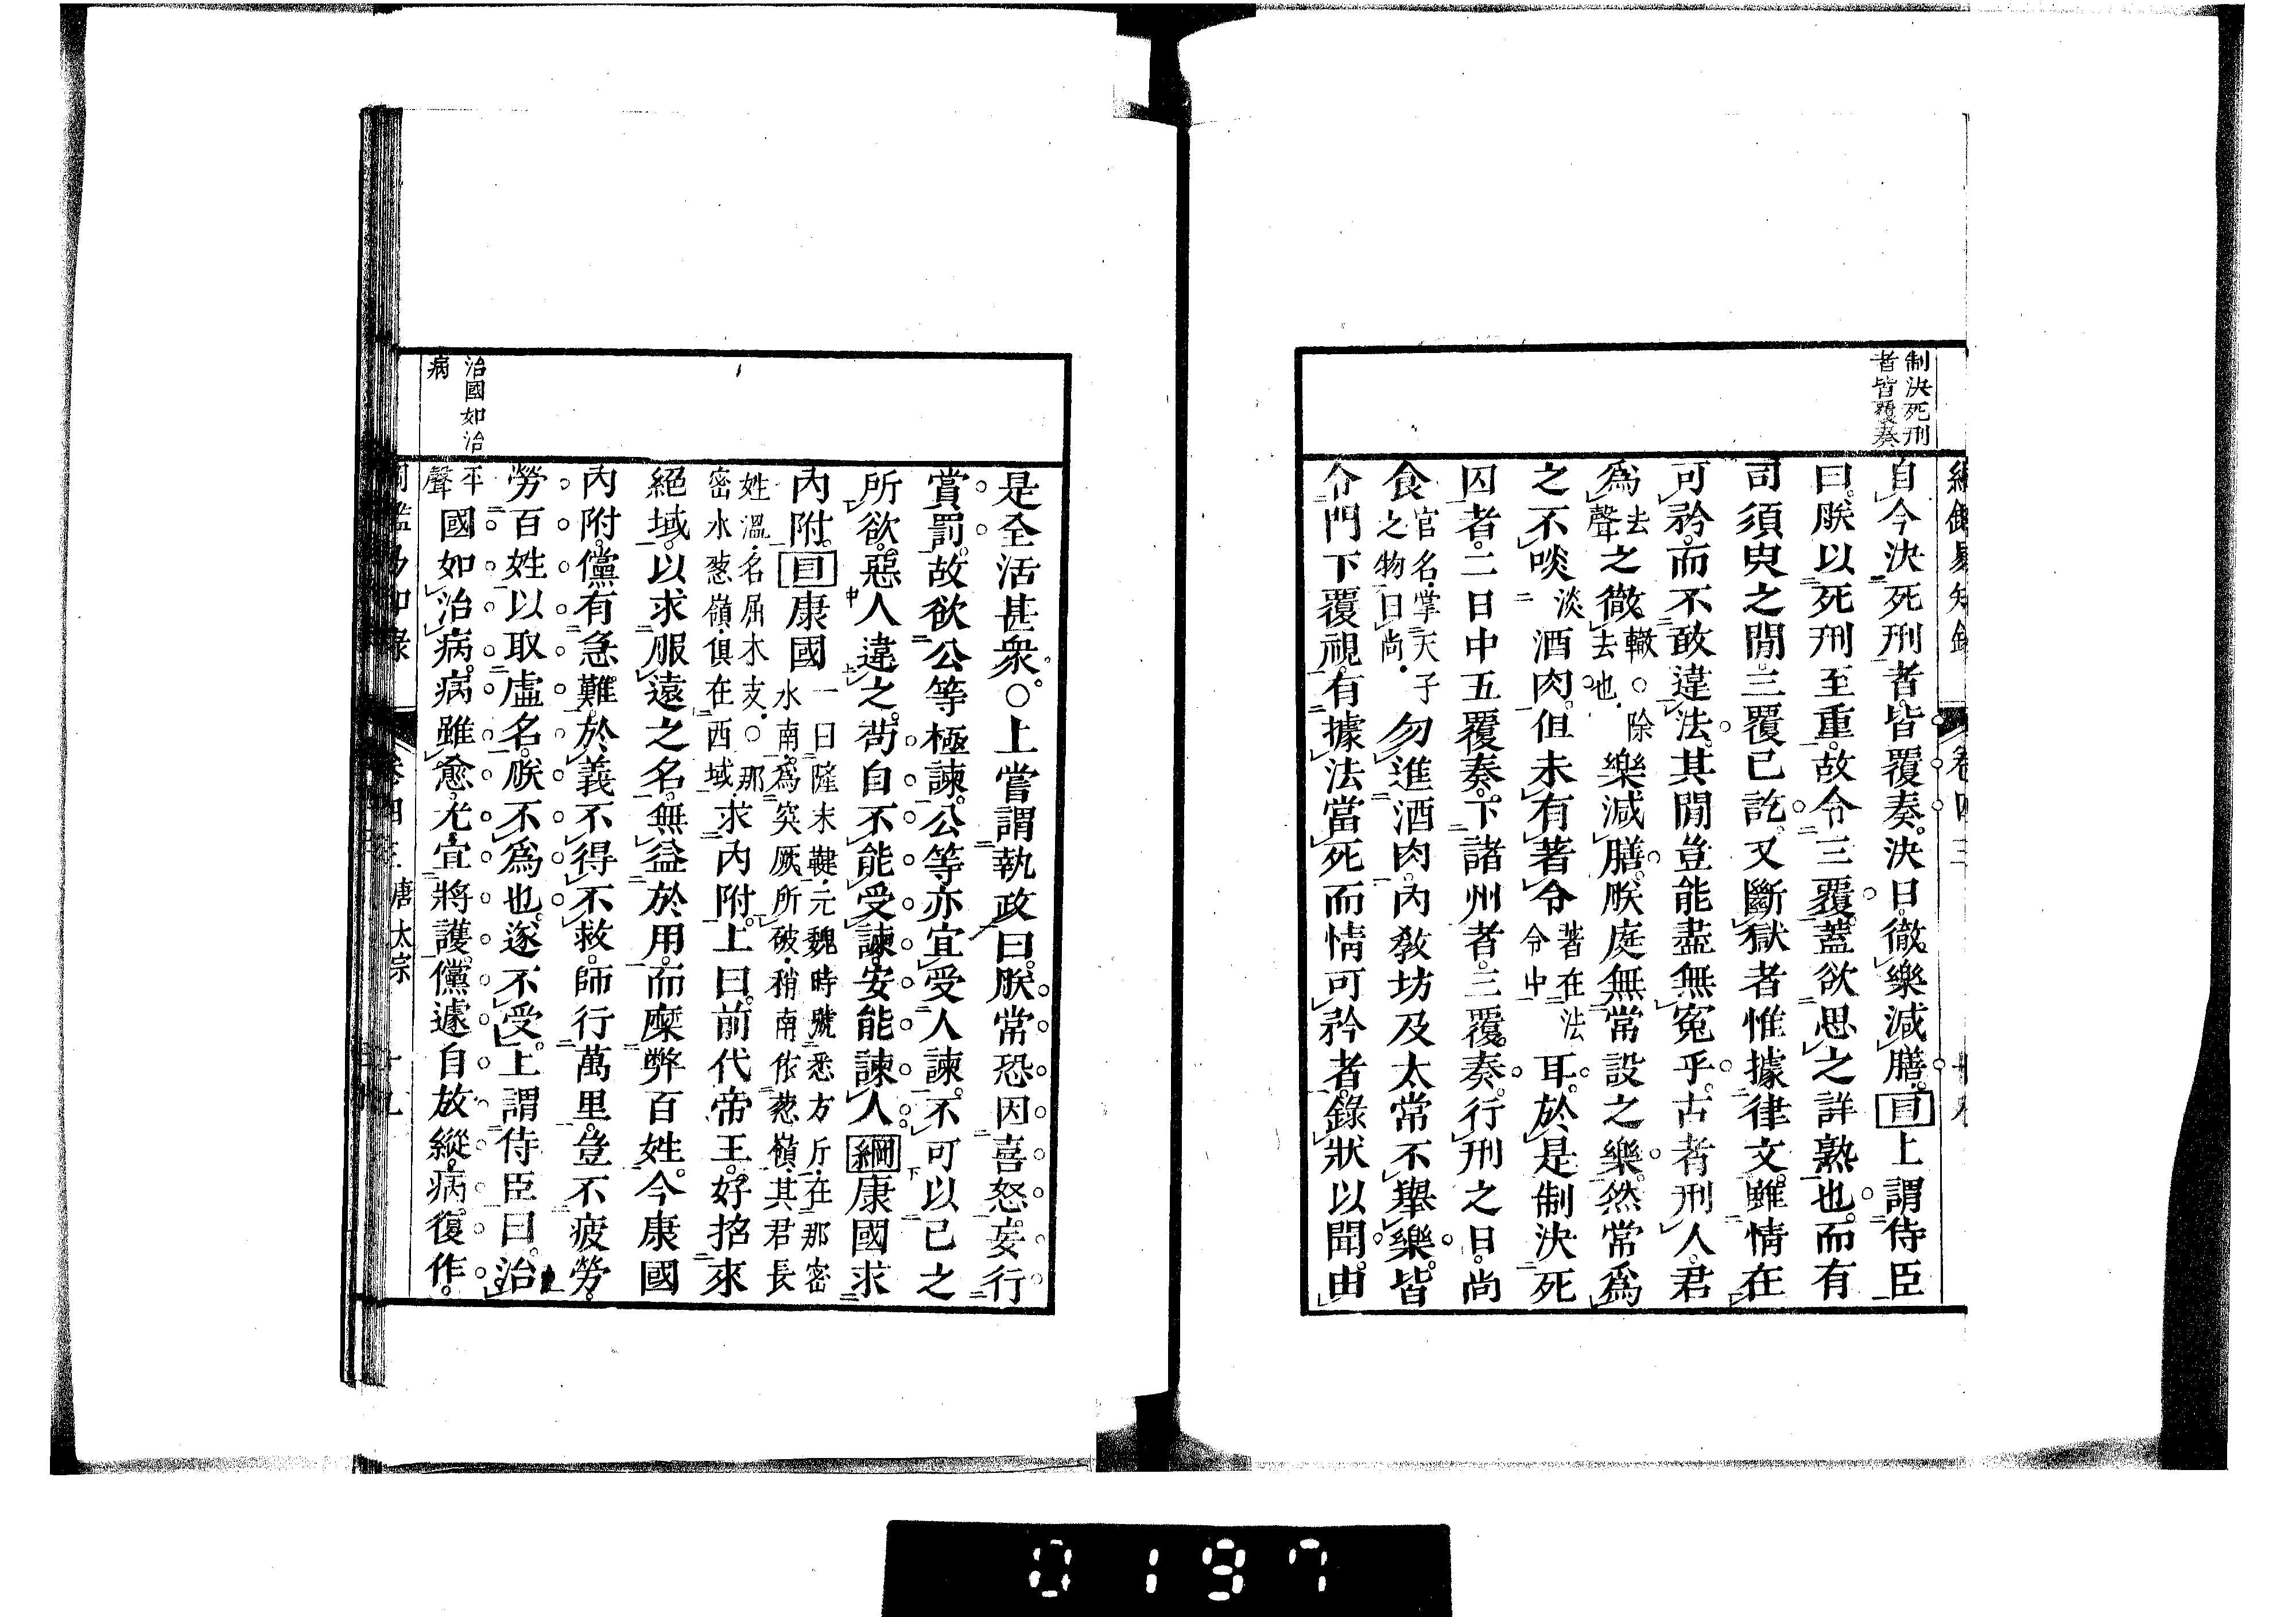 制決死刑
者皆覆奏
自今決死刑者皆覆奏。決日。徹樂減膳。目上謂侍臣
曰。朕以死刑至重。故令三覆。蓋欲思之詳熟也。而有
司須臾之閒三覆已訖。又斷獄者惟據律文。雖情在
可矜。而不敢違法。其閒豈能盡無冤乎。古者刑人。君
爲去聲之徹轍○除去也樂減膳。朕庭無常設之樂。然常爲
之不啖淡酒肉。但未有著令著在法令中耳。於是制決死
囚者。二日中五覆奏。下諸州者。三覆奏。行刑之日。尚
食官名掌天子之物曰尚勿進酒肉。內敎坊及太常不舉樂。皆
令門下覆視。有據法當死而情可矜者。錄狀以聞。由
是全活甚衆。○上嘗謂執政曰。朕常恐因喜怒妄行
賞罰。故欲公等極諫。公等亦宜受人諫。不可以已之
所欲。惡人違之。苟自不能受諫。安能諫人。綱康國求
內附。目康國一曰薩末鞬元魏時號悉方斤在那密水南爲突厥所破稍南依葱嶺其君長
姓溫名屈木支○那密水葱嶺俱在西域求內附。上曰。前代帝王。好招來
絕域。以求服遠之名。無益於用。而糜弊百姓。今康國
內附。儻有急難。於義不得不救。師行萬里。豈不疲勞。
勞百姓以取虛名。朕不爲也。遂不受。上謂侍臣曰。治
平聲國如治病。病雖愈。尤宜將護。儻遽自放縱。病復作。
治國如治
病
唐太宗
0197